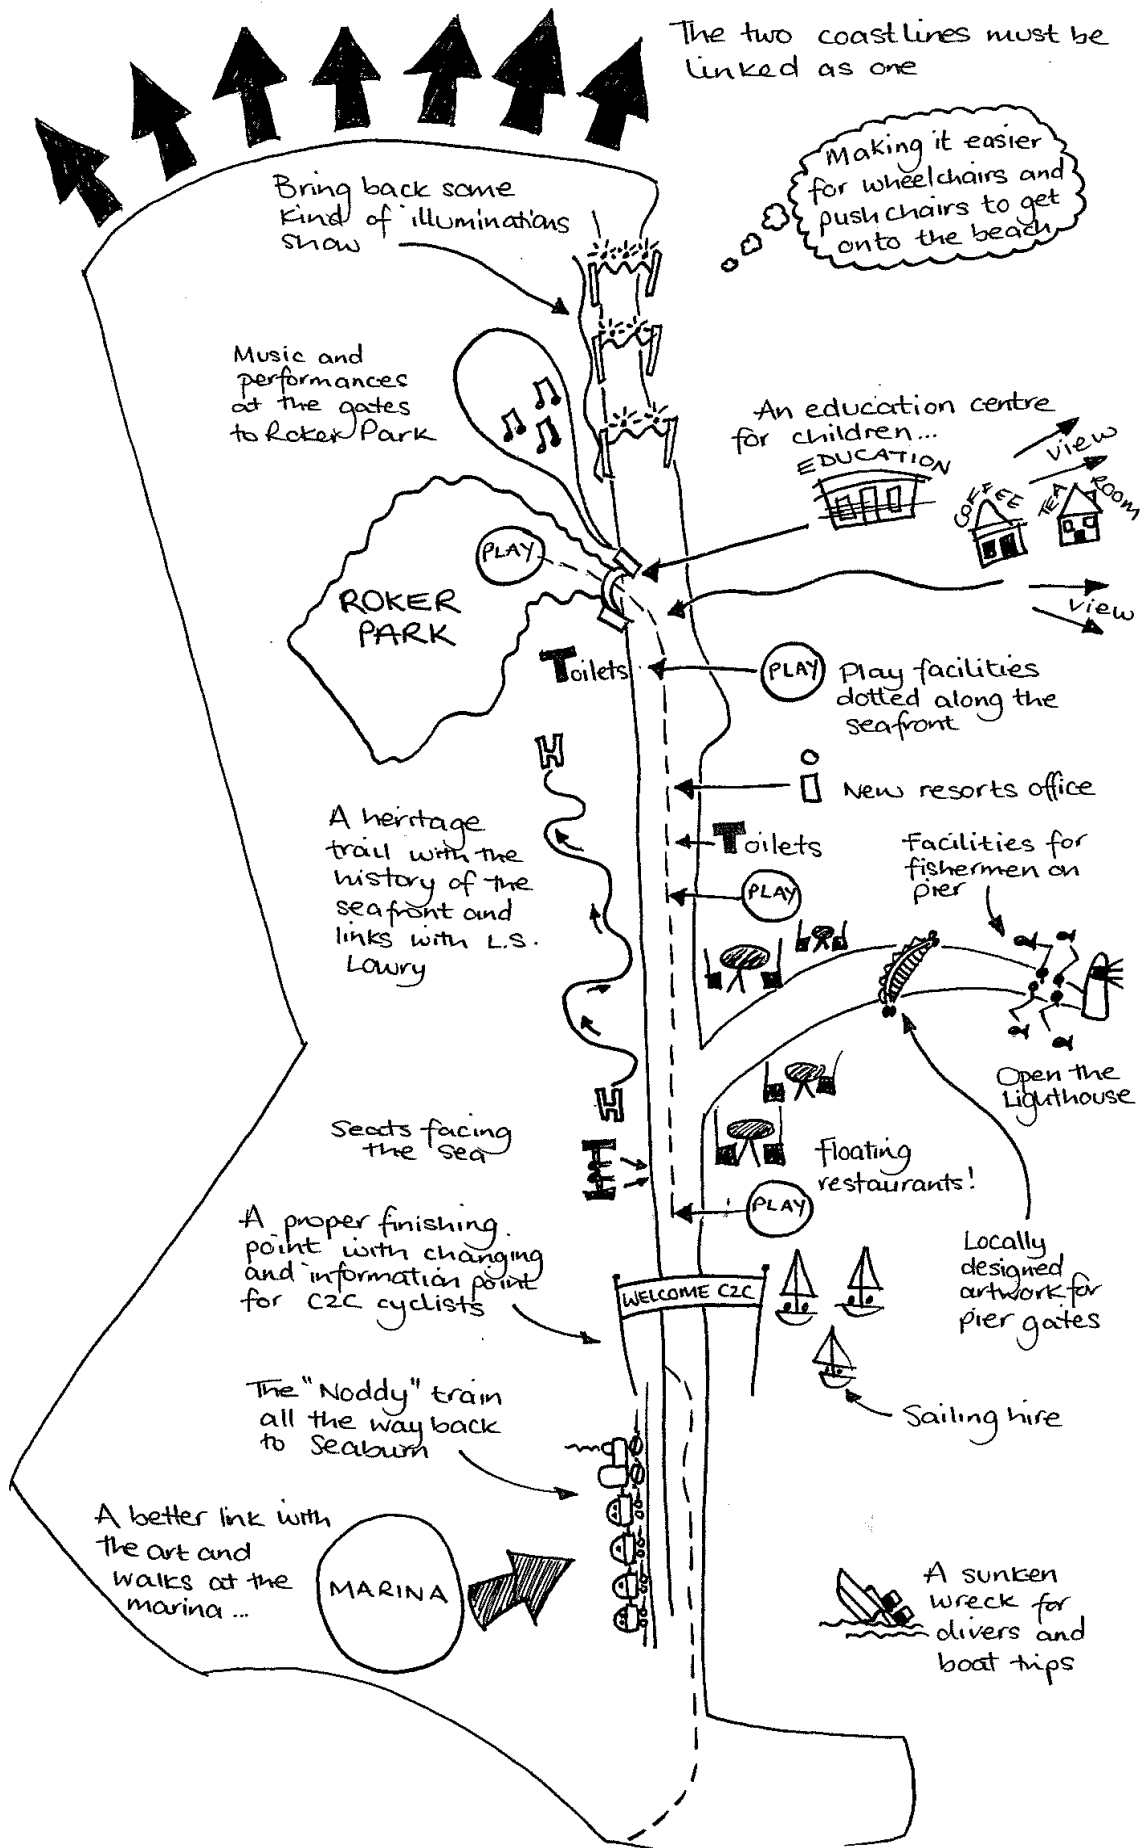 The two coastlines must be
linked as one
Making it easier
for wheelchairs and
pushchairs to get
onto the beach
Bring back some
kind of illuminations
show
Music and
performances
at the gates
to Roker Park
An education centre
for children...
EDUCATION
COFFEE
TEA ROOM
view
view
PLAY
ROKER
PARK
Toilets
PLAY
Play facilities
dotted along the
seafront
i
New resorts office
Toilets
PLAY
Facilities for
fishermen on
pier
H
A heritage
trail with the
history of the
seafront and
links with L.S.
Lowry
H
Open the
Lighthouse
Seats facing
the sea
Floating
restaurants!
PLAY
A proper finishing
point with changing
and information point
for C2C cyclists
WELCOME C2C
Locally
designed
artwork for
pier gates
The "Noddy" train
all the way back
to Seaburn
Sailing hire
A better link with
the art and
walks at the
marina...
MARINA
A sunken
wreck for
divers and
boat trips